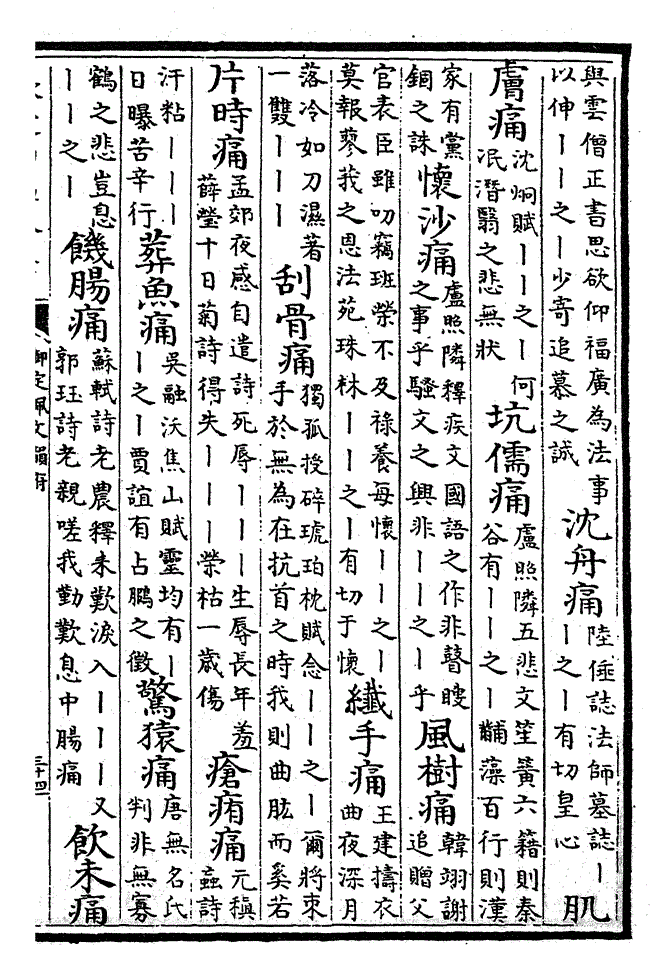 與雲僧正書思欲仰福廣為法事
以伸丨丨之丨少寄追慕之誠
沈舟痛
陸倕誌法師墓誌丨
丨之丨有切皇心
肌
膚痛
沈炯賦丨丨之丨何
泯潛翳之悲無狀
坑儒痛
盧照隣五悲文笙簧六籍則秦
谷有丨丨之丨黼藻百行則漢
家有黨
錮之誅
懷沙痛
盧照隣釋疾文國語之作非瞽瞍
之事乎騷文之興非丨丨之丨乎
風樹痛
韓翃謝
追贈父
官表臣雖叨竊班榮不及祿養每懷丨丨之丨
莫報蓼莪之恩法苑珠林丨丨之丨有切于懷
纖手痛
王建擣衣
曲夜深月
落冷如刀濕著
一雙丨丨丨
刮骨痛
獨孤授碎琥珀枕賦念丨丨之丨爾將束
手於無為在抗首之時我則曲肱而奚若
片時痛
孟郊夜感自遣詩死辱丨丨丨生辱長年羞
薛瑩十日菊詩得失丨丨丨榮枯一歲傷
瘡痏痛
元稹
蝱詩
汗粘丨丨丨
日曝苦辛行
葬魚痛
吳融沃焦山賦靈均有丨
丨之丨賈誼有占鵬之徵
驚猿痛
唐無名氏
判非無寡
鶴之悲豈息
丨丨之丨
饑腸痛
蘇軾詩老農釋耒歎淚入丨丨丨又
郭珏詩老親嗟我勤歎息中腸痛
飲未痛
御定佩文韻府
三十四